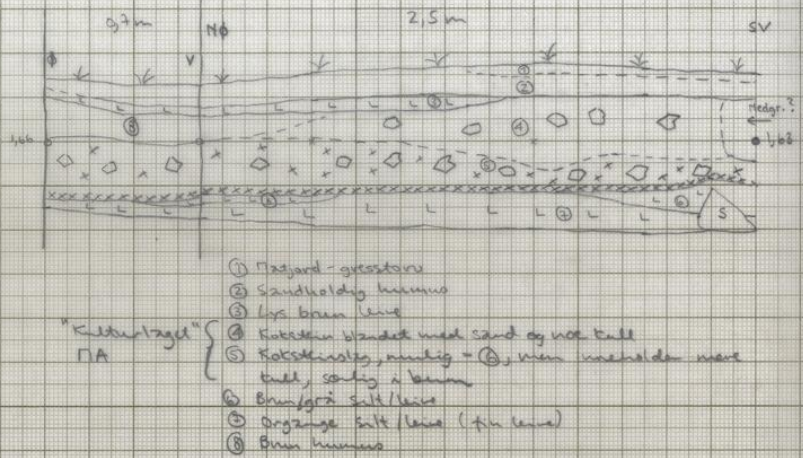 0,7m 2,5 m
Ø V NØ SV
① ②
L L L L L L L ③ L
⑧ ④ Nedgr.?
1,66 1,63
⑤
L ⑥ L
L L L L L L L L ⑦ L L S
① Matjord - gresstorv
② Sandholdig humus
③ Lys brun leire
"Kulturlaget" ④ Kokstein blandet med sand og noe kull
ΠA ⑤ Koksteinslag, mulig = ⑥, men inneholder mere
kull, særlig i bunn
⑥ Brun/grå silt/leire
⑦ Organge silt/leire (fin leire)
⑧ Brun humus